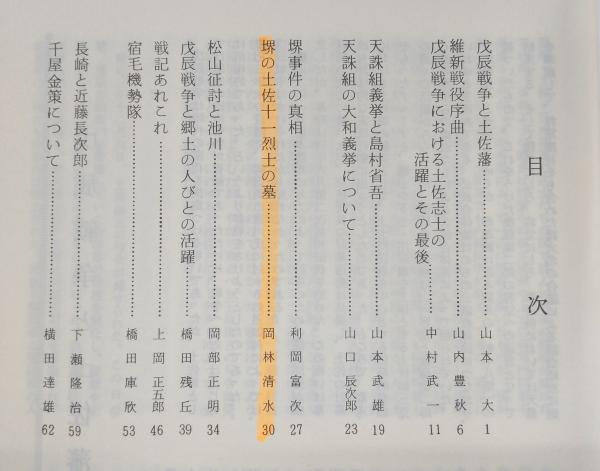 目次
戊辰戦争と土佐藩……………山本　大　1
維新戦役序曲……………山内豊秋　6
戊辰戦争における土佐志士の
活躍とその最後……………中村武一　11
天誅組義挙と島村省吾……………山本武雄　19
天誅組の大和義挙について……………山口辰次郎　23
堺事件の真相……………利岡富次　27
堺の土佐十一烈士の墓……………岡林清水　30
松山征討と池川……………岡部正明　34
戊辰戦争と郷土の人びとの活躍……………橋田残丘　39
戦記あれこれ……………上岡正五郎　46
宿毛機勢隊……………橋田庫欣　53
長崎と近藤長次郎……………下瀬隆治　59
千屋金策について……………横田達雄　62